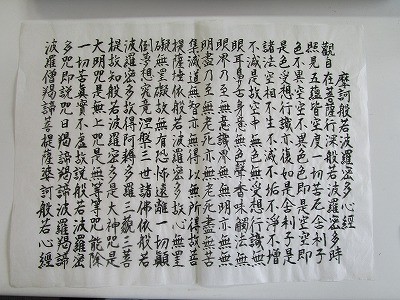 摩訶般若波羅蜜多心經
觀自在菩薩行深般若波羅蜜多時
照見五蘊皆空度一切苦厄舍利子
色不異空空不異色色即是空空即
是色受想行識亦復如是舍利子是
諸法空相不生不滅不垢不淨不增
不減是故空中無色無受想行識無
眼耳鼻舌身意無色聲香味觸法無
眼界乃至無意識界無無明亦無無
明盡乃至無老死亦無老死盡無苦
集滅道無智亦無得以無所得故菩
提薩埵依般若波羅蜜多故心無罣
礙無罣礙故無有恐怖遠離一切顛
倒夢想究竟涅槃三世諸佛依般若
波羅蜜多故得阿耨多羅三藐三菩
提故知般若波羅蜜多是大神咒是
大明咒是無上咒是無等等咒能除
一切苦真實不虛故說般若波羅蜜
多咒即說咒曰羯諦羯諦波羅羯諦
波羅僧羯諦菩提薩婆訶般若心經